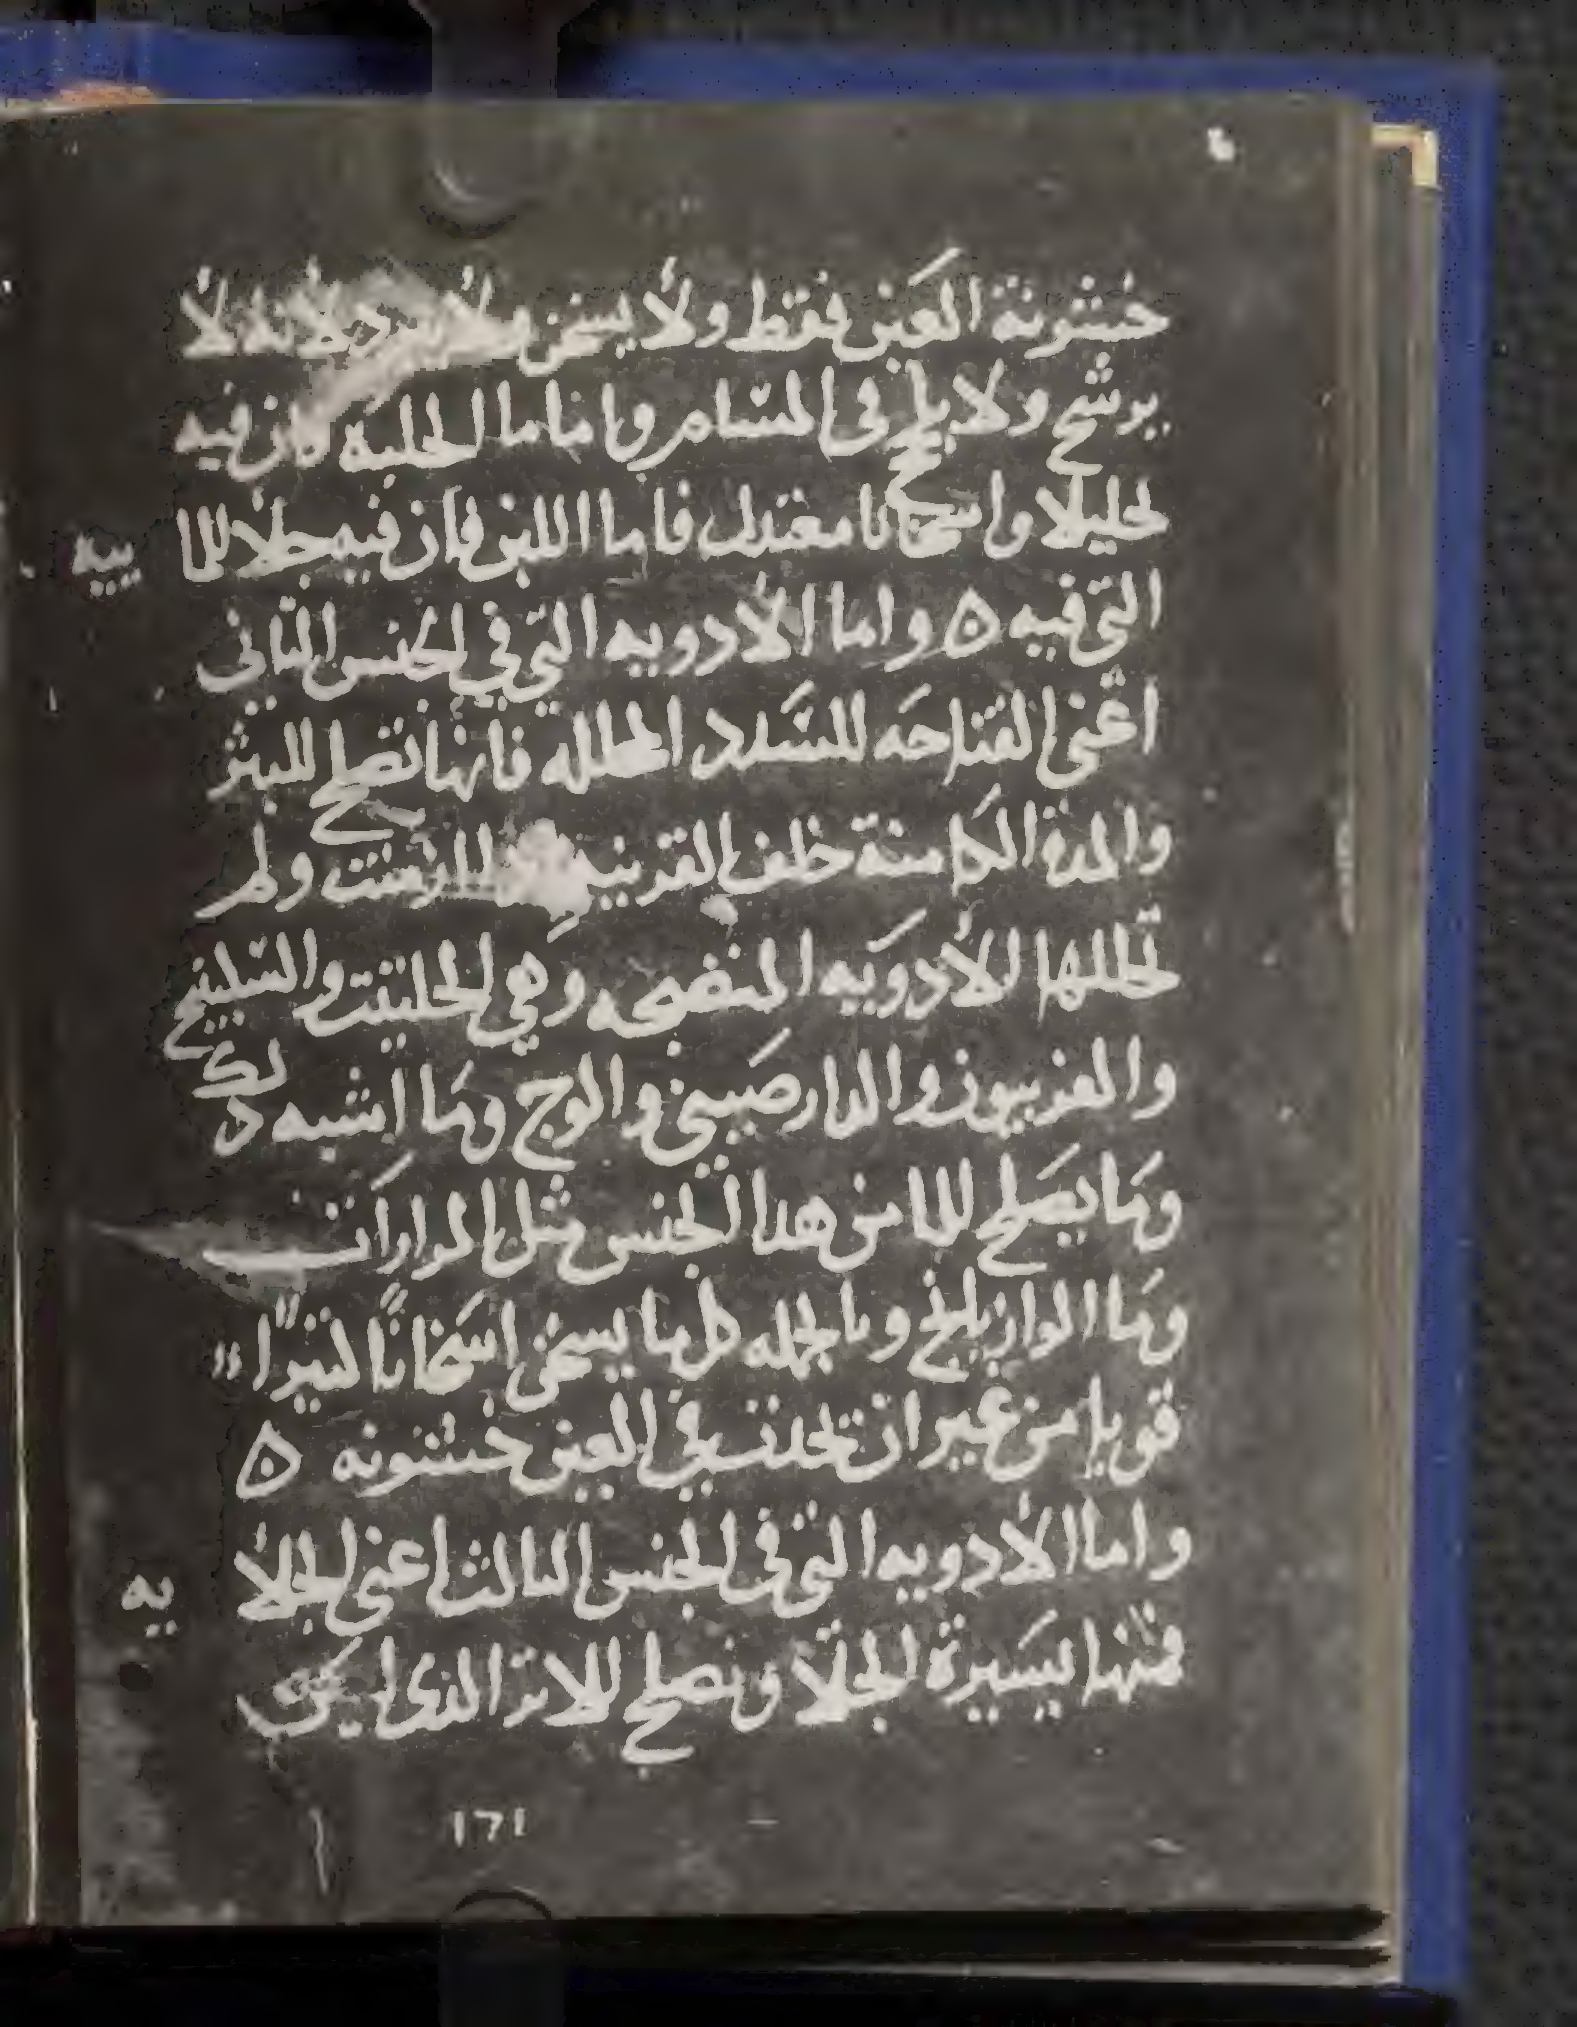 خشونة العين فقط ولا يسخن ولا يبرد لانه لا
يرشح ولا يلج في المسام واما ما الحلبة فان فيه
تحليلا واسخانا معتدل فاما اللبن فان فيه جلا للما
ييه
التي فيه ه واما الادويه التي في الجنس الثاني
اعني الفتاحه للسدد المحلله فانها تصلح للبثر
والمدة الكامنة خلف القرنيه للزمنت ولم
تحللها الادويه المنضجه وهي الحلتيت والسكبينج
والفربيون والدارصيني والوج وما اشبه ذلك
وما يصلح للما من هدا الجنس مثل المرارات
وما الرازيانج وبالجمله كل ما يسخن اسخانا كثيرا
قويا من غير ان تحدث في العين خشونه ه
واما الادويه التي في الجنس الثالث اعني الجلا
يه
فمنها يسيرة الجلا وتصلح للاثر الذي ليس
١٦١